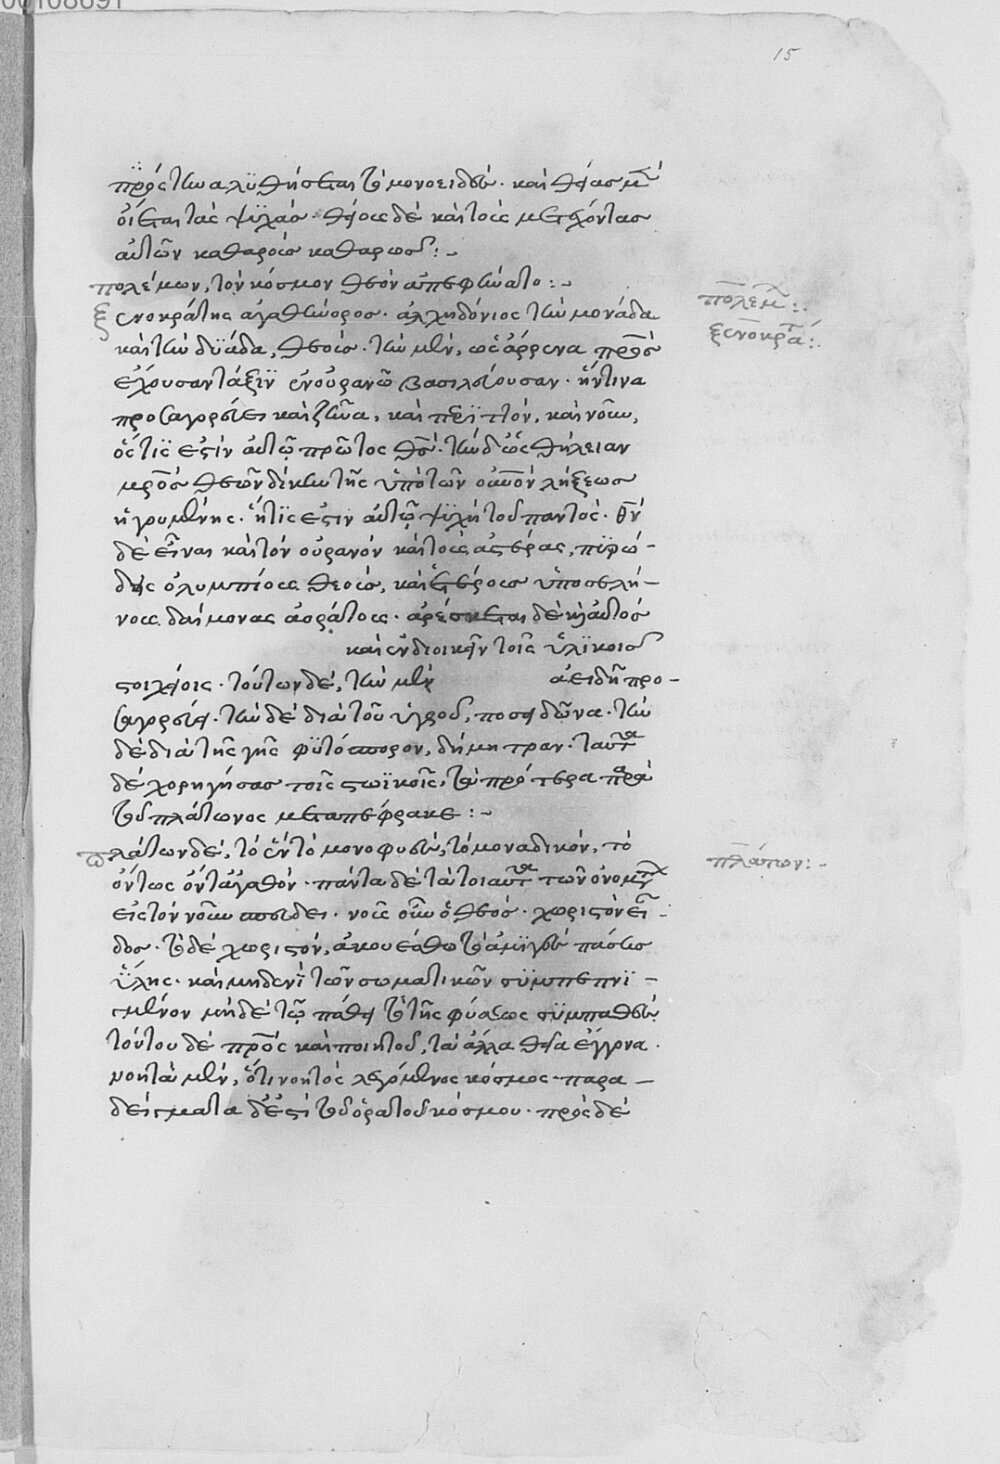 00108691
15
πρὸς τὴν ἀλυθήσεται τὸ μονοειδές· καὶ θείας μὲν
οἴεται τὰς ψυχάς· θείους δὲ καὶ τοὺς μετέχοντας
αὐτῶν καθαροὺς καθαρῶς:~
πολέμων, τὸν κόσμον θεὸν ἀπεφήνατο:~
πολέμ:.
ξενοκράτης ἀγαθήνορος· ἀλχηδόνιος τὴν μονάδα
ξενοκρά:.
καὶ τὴν δυάδα, θεούς· τὴν μὲν, ὡς ἄρρενα πρὸς
ἔχουσαν τάξιν ἐν οὐρανῷ βασιλεύουσαν· ἥντινα
προσαγορεύει καὶ ζῆνα, καὶ περιττὸν, καὶ νοῦν,
ὅστις ἐστὶν αὐτῷ πρῶτος θς· τὴν δ' ὡς θήλειαν
μρὸς θεῶν δίκην τῆς ὑπὸ τῶν οὐνὸν λήξεως
ἡγουμένης· ἥτις ἐστιν αὐτῷ ψυχὴ τοῦ παντός· θν
δὲ εἶναι καὶ τὸν οὐρανὸν καὶ τοὺς ἀστέρας, πυρώ-
δεις ὀλυμπίους θεοὺς, καὶ ἑτέρους ὑποσελή-
νους δαίμονας ἀοράτους· ἀρέσκεται δὲ κὶ αὐτὸς
καὶ ἐνδιοικεῖν τοῖς ὑλικοῖς
στοιχείοις· τούτων δὲ, τὴν μὲν ἀειδῆ προ-
σαγορεύει· τὴν δὲ διὰ τοῦ ὑγροῦ, ποσειδῶνα· τὴν
δὲ διὰ τῆς γῆς φυτόσπορον, δήμητραν· ταῦτα
δὲ χορηγήσας τοῖς στωϊκοῖς, τὰ πρότερα παρὰ
τοῦ πλάτωνος μεταπέφρακε:~
πλάτων δὲ, τὸ ἓν τὸ μονοφυές, τὸ μοναδικὸν, τὸ
πλάτων:-
ὄντως ὂν τἀγαθόν· πάντα δὲ τὰ τοιαῦτα τῶν ὀνομάτ
εἰς τὸν νοῦν σπεύδει· νοῦς οὖν ὁ θεὸς· χωριστὸν εἶ-
δος· τὸ δὲ χωριστὸν, ἀκουέσθω τὸ ἀμιγὲς πάσης
ὕλης· καὶ μηδενὶ τῶν σωματικῶν συμπεπλϊ-
γμένον μηδὲ τῷ πάθει τὸ τῆς φύσεως συμπαθές·
τούτου δὲ πρὸς καὶ ποιητοῦ, τὰ ἄλλα θεῖα ἔγγονα·
νοητὰ μὲν, ὅτι νοητὸς λεγόμενος κόσμος· παρα-
δείγματα δ' ἐστὶ τοῦ ὁρατοῦ κόσμου· πρὸς δὲ